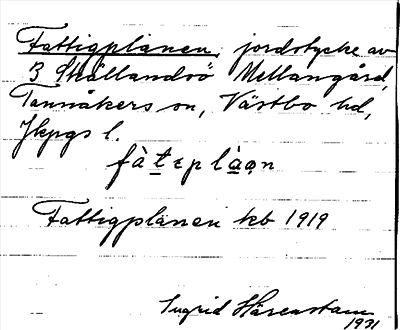 Fattigplanen, jordstycke av
3 Skällandsö Mellangård,
Tannåkers sn, Västbo hd,
Jkpgs l.
fàt ɛplàan
Fattigplanen kb 1919
Ingrid Härenstam
1931